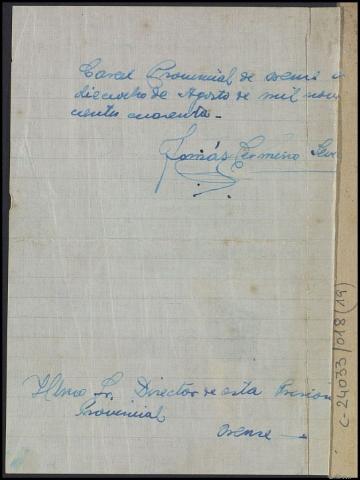 Carcel Provincial de Orense
dieciocho de Agosto de mil nove
cientos cuarenta.-
Tomás Cermeño
Iltmo Sr. Director de esta Prision
Provincial
Orense
C-24033/018 (19)